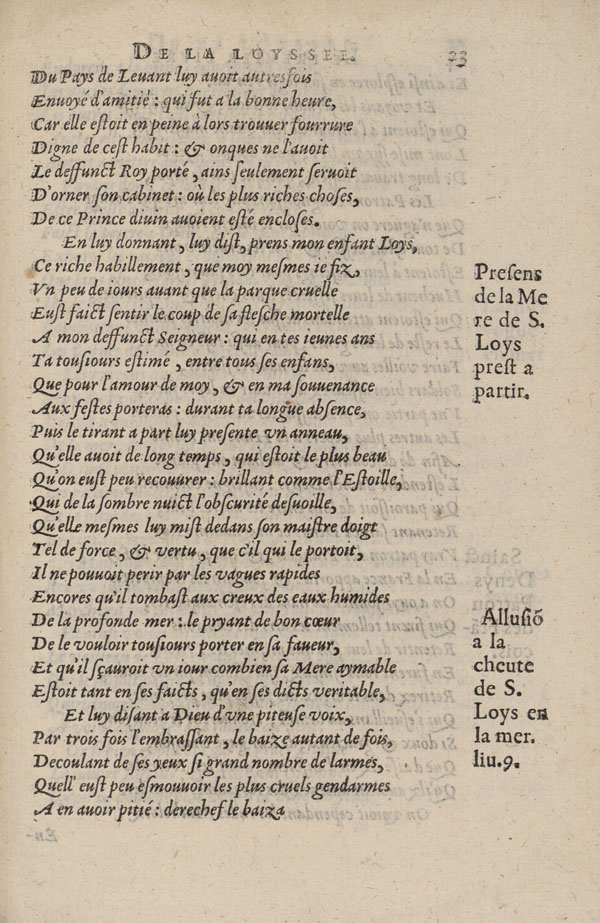 DE LA LOYSSEE. 23
Du Pays de Leuant luy auoit autresfois
Enuoyé d'amitié : qui fut a la bonne heure,
Car elle estoit en peine à lors trouuer fourrure
Digne de cest habit : & onques ne l'auoit
Le deffunct Roy porté, ains seulement seruoit
D'orner son cabinet : où les plus riches choses,
De ce Prince diuin auoient esté encloses.
En luy donnant, luy dist, prens mon enfant Loys,
Ce riche habillement, que moy mesmes ie fiz,
Vn peu de iours auant que la parque cruelle
Eust faict sentir le coup de sa flesche mortelle
A mon deffunct Seigneur : qui en tes ieunes ans
Ta tousiours estimé, entre tous ses enfans,
Que pour l'amour de moy, & en ma souuenance
Aux festes porteras : durant ta longue absence,
Puis le tirant a part luy presente vn anneau,
Qu'elle auoit de long temps, qui estoit le plus beau
Qu'on eust peu recouurer : brillant comme l'Estoille,
Qui de la sombre nuict l'obscurité desuoille,
Qu'elle mesmes luy mist dedans son maistre doigt
Tel de force, & vertu, que c'il qui le portoit,
Il ne pouuoit perir par les vagues rapides
Encores qu'il tombast aux creux des eaux humides
De la profonde mer : le pryant de bon cœur
De le vouloir tousiours porter en sa faueur,
Et qu'il sçauroit vn iour combien sa Mere aymable
Estoit tant en ses faicts, qu'en ses dicts veritable,
Et luy disant a Dieu d'vne piteuse voix,
Par trois fois l'embrassant, le baize autant de fois,
Decoulant de ses yeux si grand nombre de larmes,
Quell' eust peu esmouuoir les plus cruels gendarmes
A en auoir pitié : derechef le baiza
En-
Presens
de la Me
re de S.
Loys
prest a
partir.
Allusiõ
a la
cheute
de S.
Loys en
la mer.
liu.9.